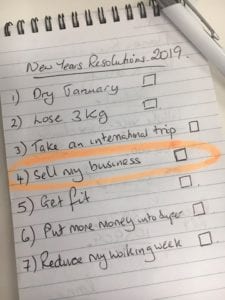 New Years Resolutions 2019
1) Dry January
2) Lose 3kg
3) Take an international trip
4) Sell my business
5) Get fit
6) Put more money into Super
7) Reduce my working week